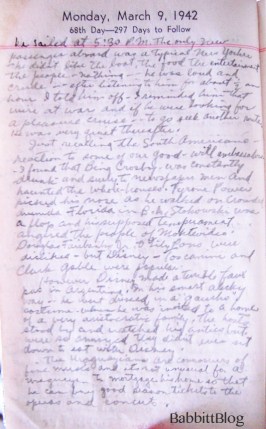 Monday, March 9, 1942
68th Day—297 Days to Follow
We sailed at 5:30 P.M. The only new
passenger aboard was a typical New Yorker
He didn't like the boat, the food the entertainment
the people - nothing - he was loud and
crude - after listening to him in about ½ an
hour I told him off. I reminded him that
we were at war and if he were looking for
a pleasure cruise - to go seek another
He was very quiet thereafter.
Just recalling the South Americans
reaction to some of our good-will ambassadors
- I found that Bing Crosby was constantly
drunk and surly to newspaper men and
haunted the whore houses. Tyrone Power
pleased him more as he walked on crowded
Florida in B.A. Stokowski was
a flop and displayed temperament
and the people of Montevideo -
Douglas Fairbanks Jr. & Lily Pons were
disliked - but Disney - Toscanini and
Clark Gable were popular.
However Disney made a terrible faux
pas in Argentina. In his smart alecky
way - he got dressed in a gaucho
costume when he was invited to a home
of a very aristocratic family. The hosts
stood by and watched his antics but
were so annoyed they didn't even sit
down to eat
The Uruguayans are connoisseurs of
fine music and it's not unusual for a
Uruguayan to mortgage his home so that
he can buy good season tickets to the
opera and concert.
BabbittBlog